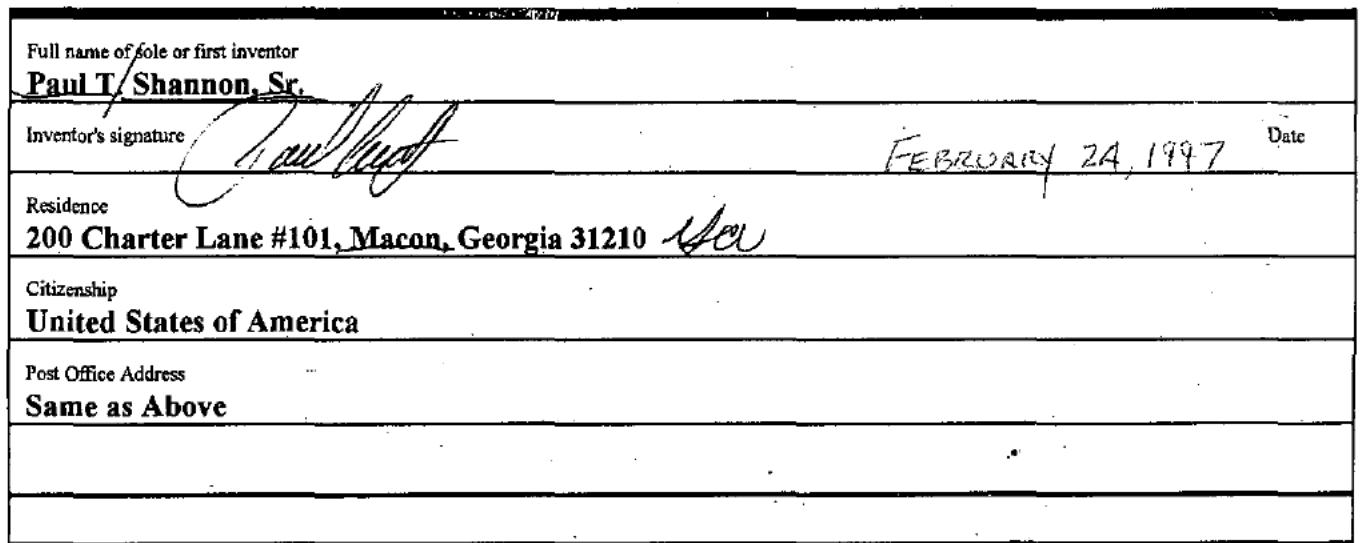 Full name of sole or first inventor
Paul T. Shannon, Sr.
Inventor's signature
FEBRUARY 24, 1997 Date
Residence
200 Charter Lane #101, Macon, Georgia 31210
Citizenship
United States of America
Post Office Address
Same as Above